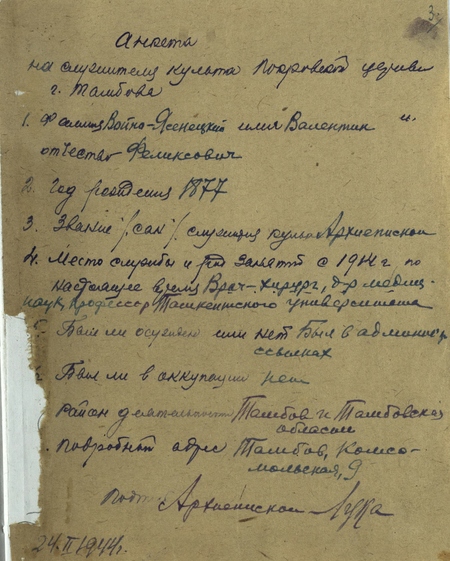 3
Анкета
на служителя культа Покровской церкви
г. Тамбова
1. Фамилия Войно-Ясенецкий имя Валентин и
отчество Феликсович
2. Год рождения 1877
3. Звание /сан/ служителя культа Архиепископ
4. Место службы и род занятий с 1914 г. по
настоящее время Врач-хирург, д-р медиц.
наук, профессор Ташкентского университета
Был ли осужден или нет Был в админис.
ссылках
Был ли в оккупации нет
Район деятельности Тамбов и Тамбовская
область
Подробный адрес Тамбов, Комсо-
мольская, 9
Архиепископ Лука
24.II.1944г.